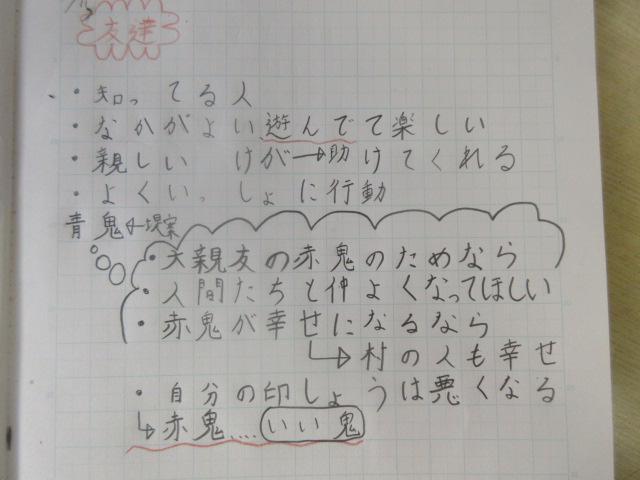 友達
・知ってる人
・なかがよい遊んでて楽しい
・親しい けが→助けてくれる
・よくいっしょに行動
青鬼←提案
・大親友の赤鬼のためなら
・人間たちと仲よくなってほしい
・赤鬼が幸せになるなら
↳村の人も幸せ
・自分の印しょうは悪くなる
↳赤鬼....いい鬼